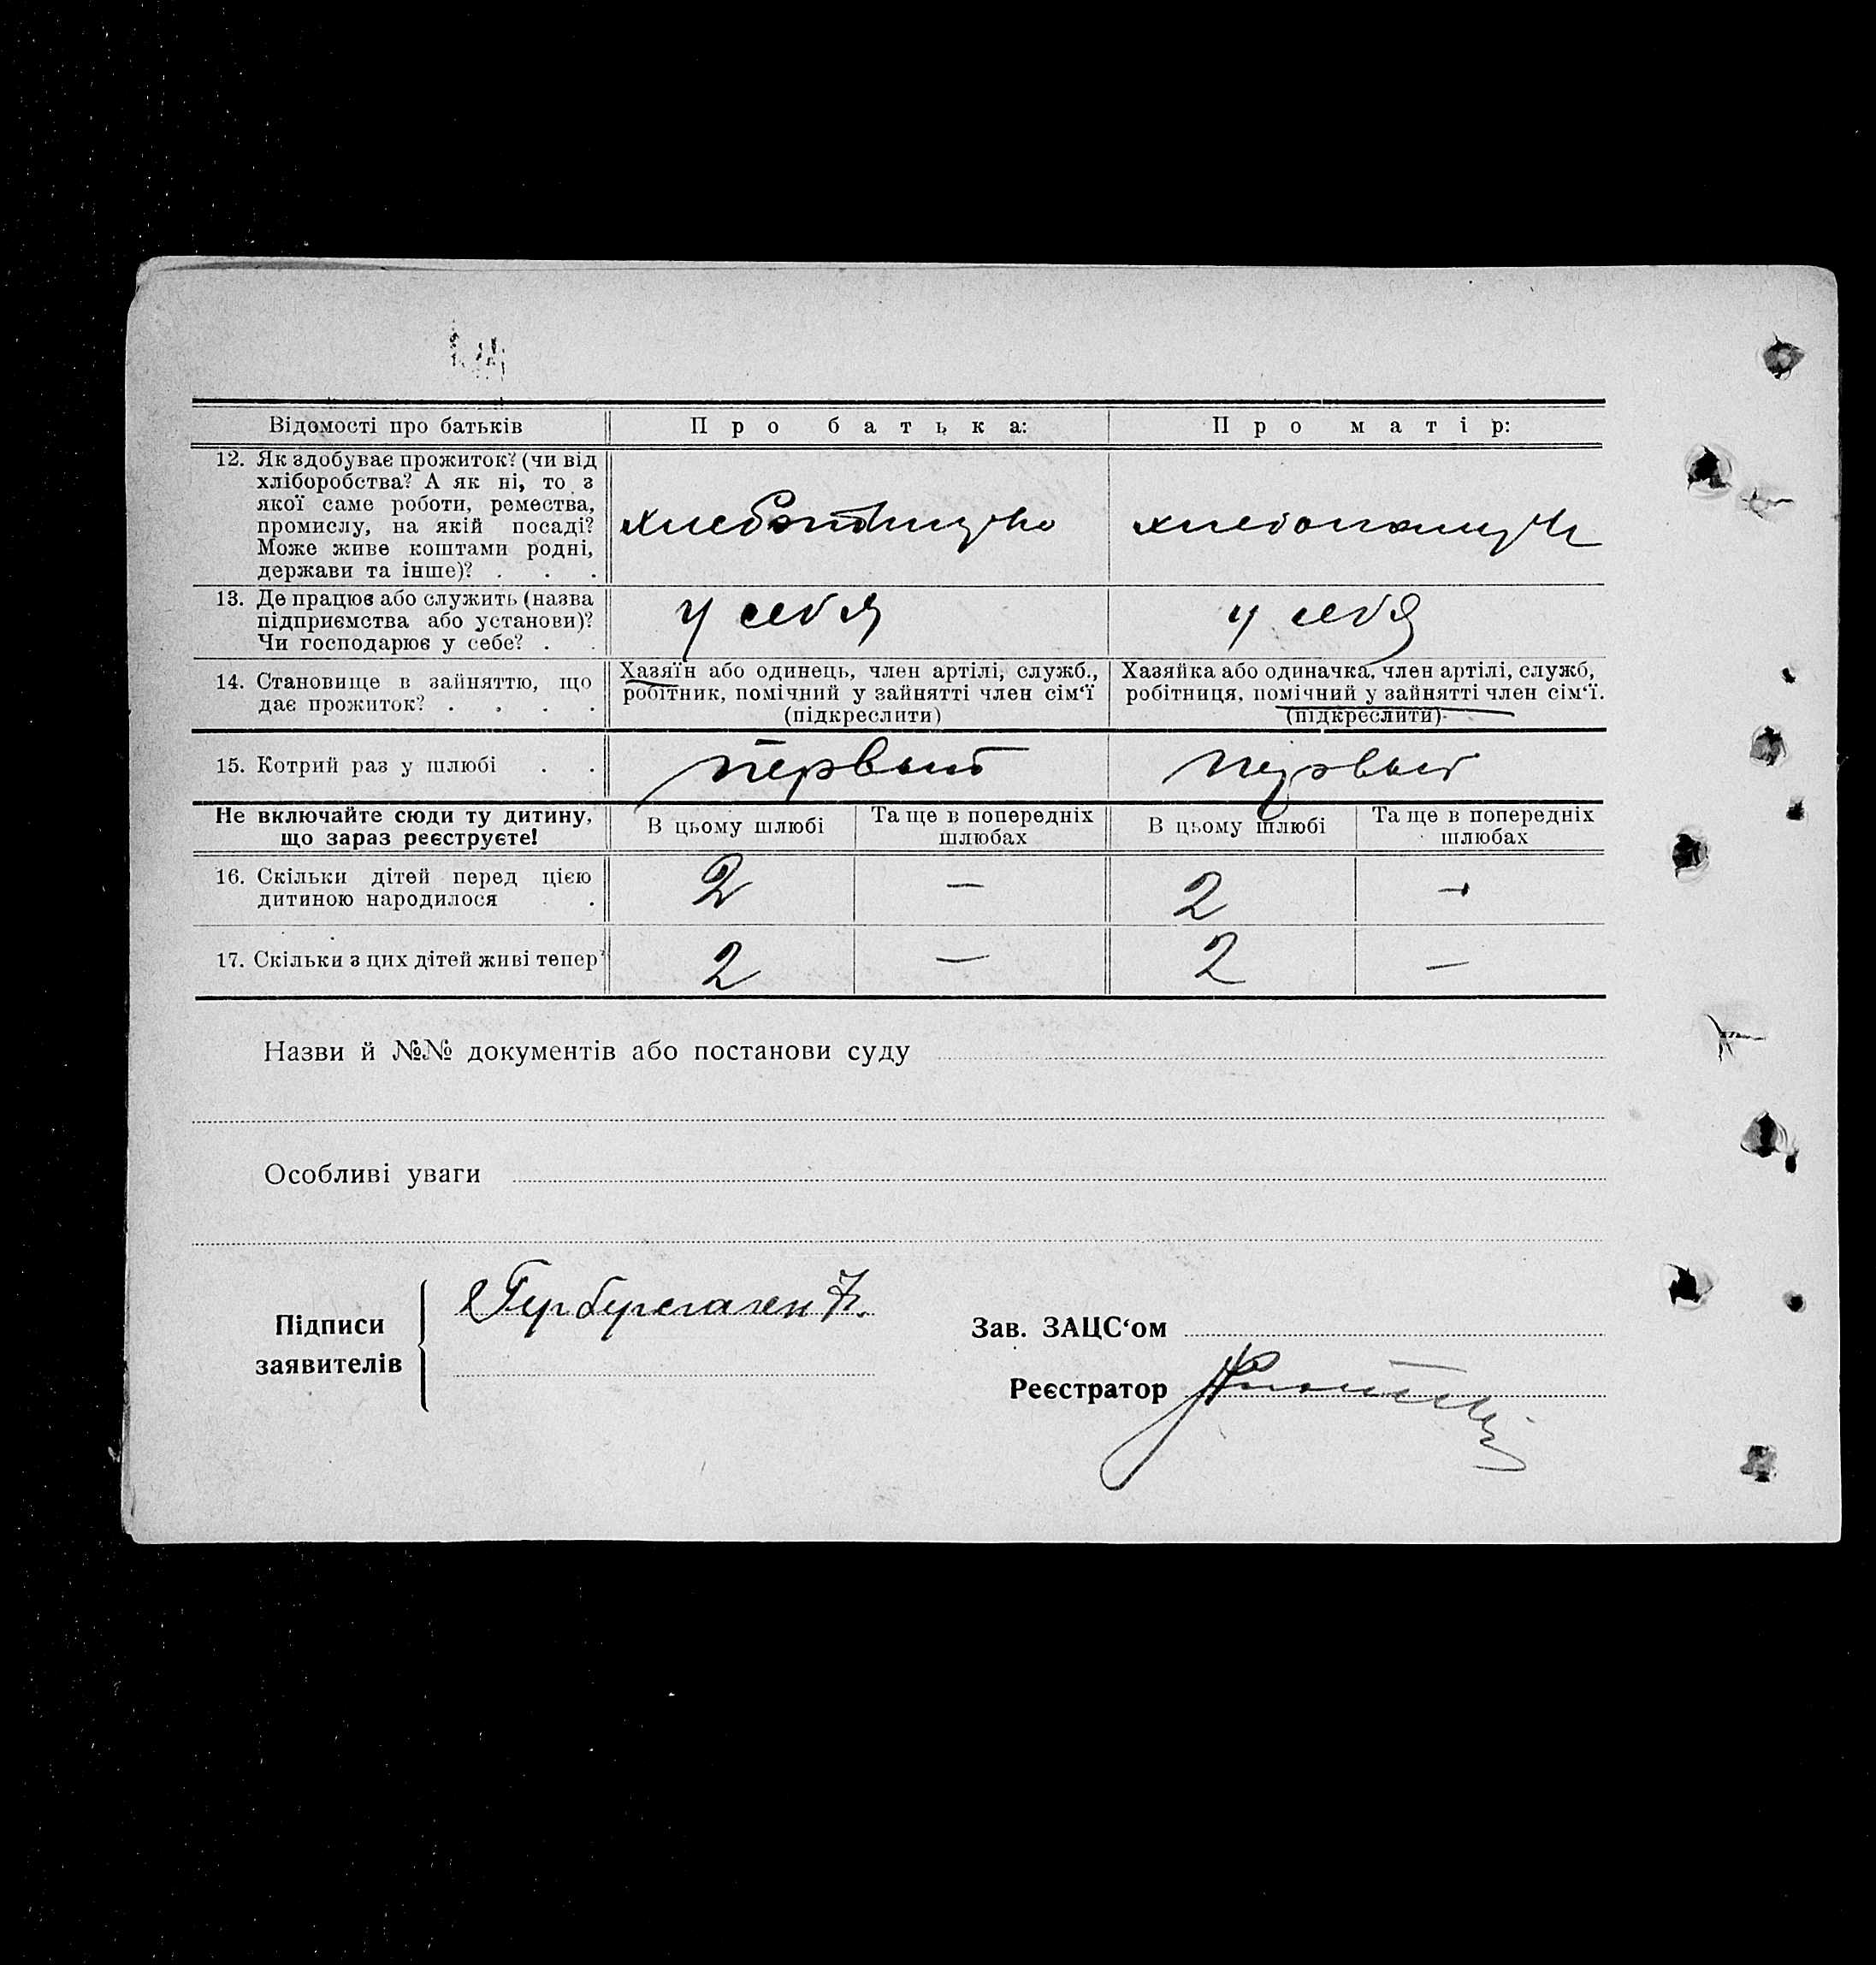 Відомості про батьків
Про батька:
Про матір:
12. Як здобуває прожиток? (чи від
хліборобства? А як ні, то з
якої саме роботи, ремества,
промислу, на якій посаді?
Може живе коштами родні,
держави та інше)? . . .
13. Де працює або служить (назва
підприємства або установи)?
Чи господарює у себе? . .
у себя
у себя
14. Становище в зайняттю, що
дає прожиток? . . . .
Хазяїн або одинець, член артілі, служб.,
робітник, помічний у зайнятті член сім‘ї
(підкреслити)
Хазяйка або одиначка, член артілі, служб,
робітниця, помічний у зайнятті член сім‘ї.
(підкреслити)
15. Котрий раз у шлюбі . .
первый
первый
Не включайте сюди ту дитину,
що зараз реєструєте!
В цьому шлюбі
Та ще в попередніх
шлюбах
В цьому шлюбі
Та ще в попередніх
шлюбах
16. Скільки дітей перед цією
дитиною народилося .
2 — 2 —
17. Скільки з цих дітей живі тепер?
2 — 2 —
Назви й №№ документів або постанови суду
Особливі уваги
Підписи
заявителів
Зав. ЗАЦС‘ом
Реєстратор